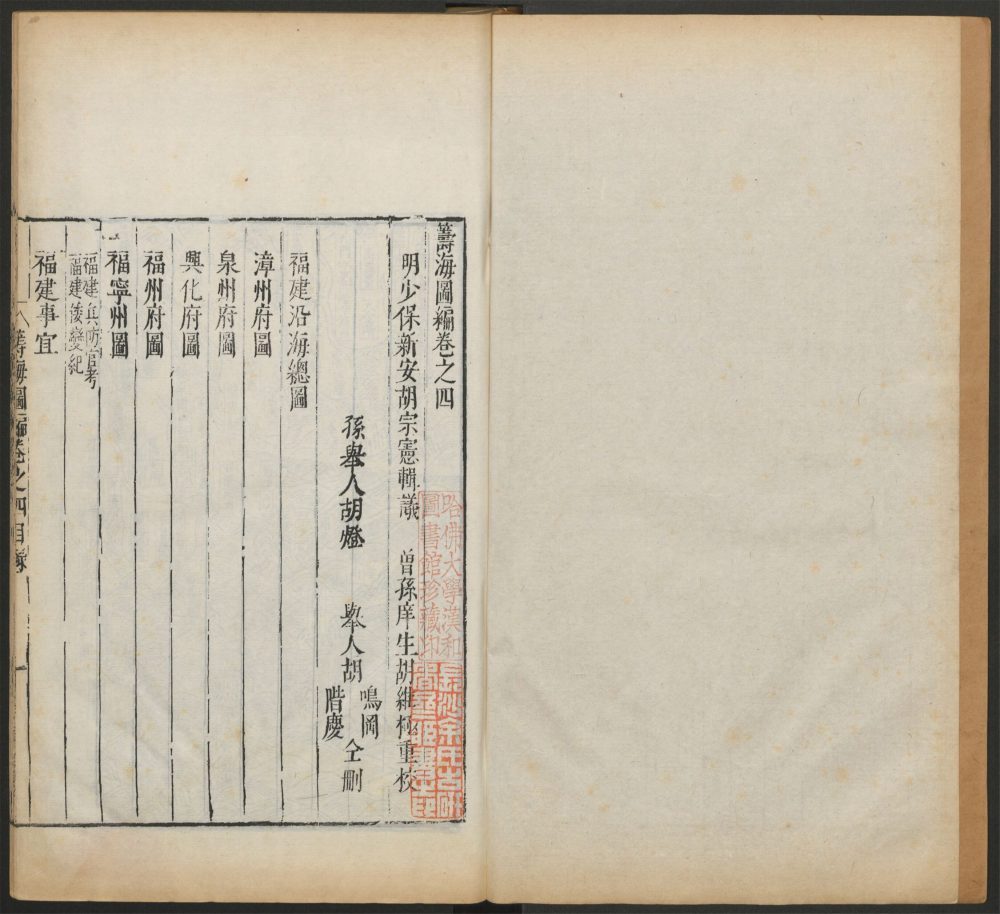 籌海圖編卷之四
明少保新安胡宗憲輯議 曾孫庠生胡維極重校
孫舉人胡燈 舉人胡鳴岡階慶仝刪
福建沿海總圖
漳州府圖
泉州府圖
興化府圖
福州府圖
福寧州圖
福建兵防官考
福建倭變紀
福建事宜
籌海圖編卷之四目錄 一
哈佛大學漢和
圖書館珍藏印